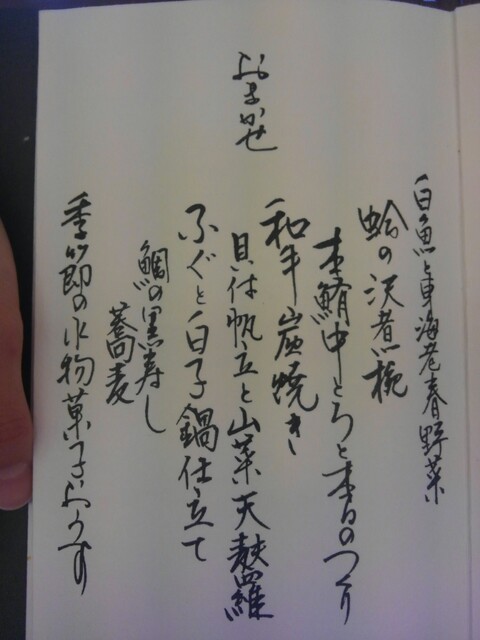 白魚と車海老春野菜
蛤の沢煮椀
本鮪中とろと本日のつくり
和牛炭焼き
貝付帆立と山菜天麩羅
ふぐと白子鍋仕立て
鯛の黒寿し
蕎麦
季節の水物菓子ようす
おまかせ